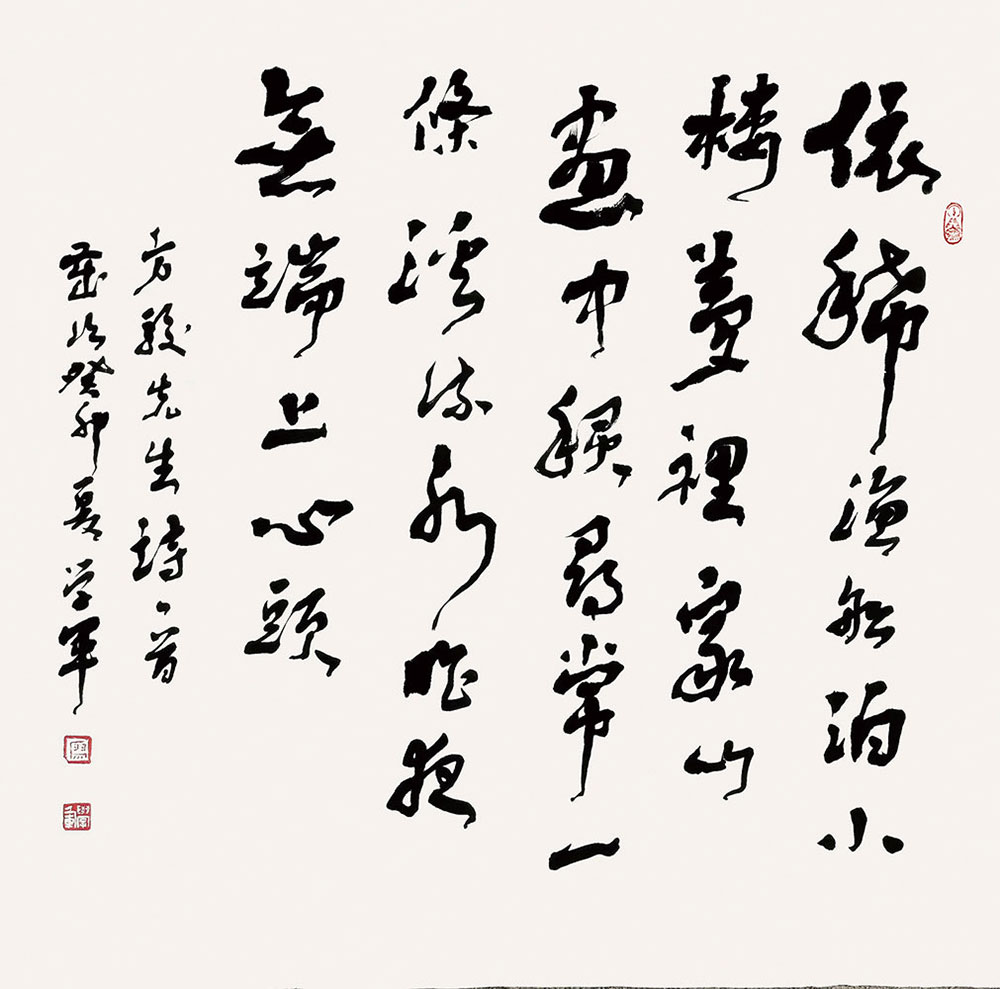 依稀漁船泊小
樓夢裡家山
畫中尋常一
條溪流水昨夜
無端上心頭
方駿先生詩一首
歲次癸卯夏学軍